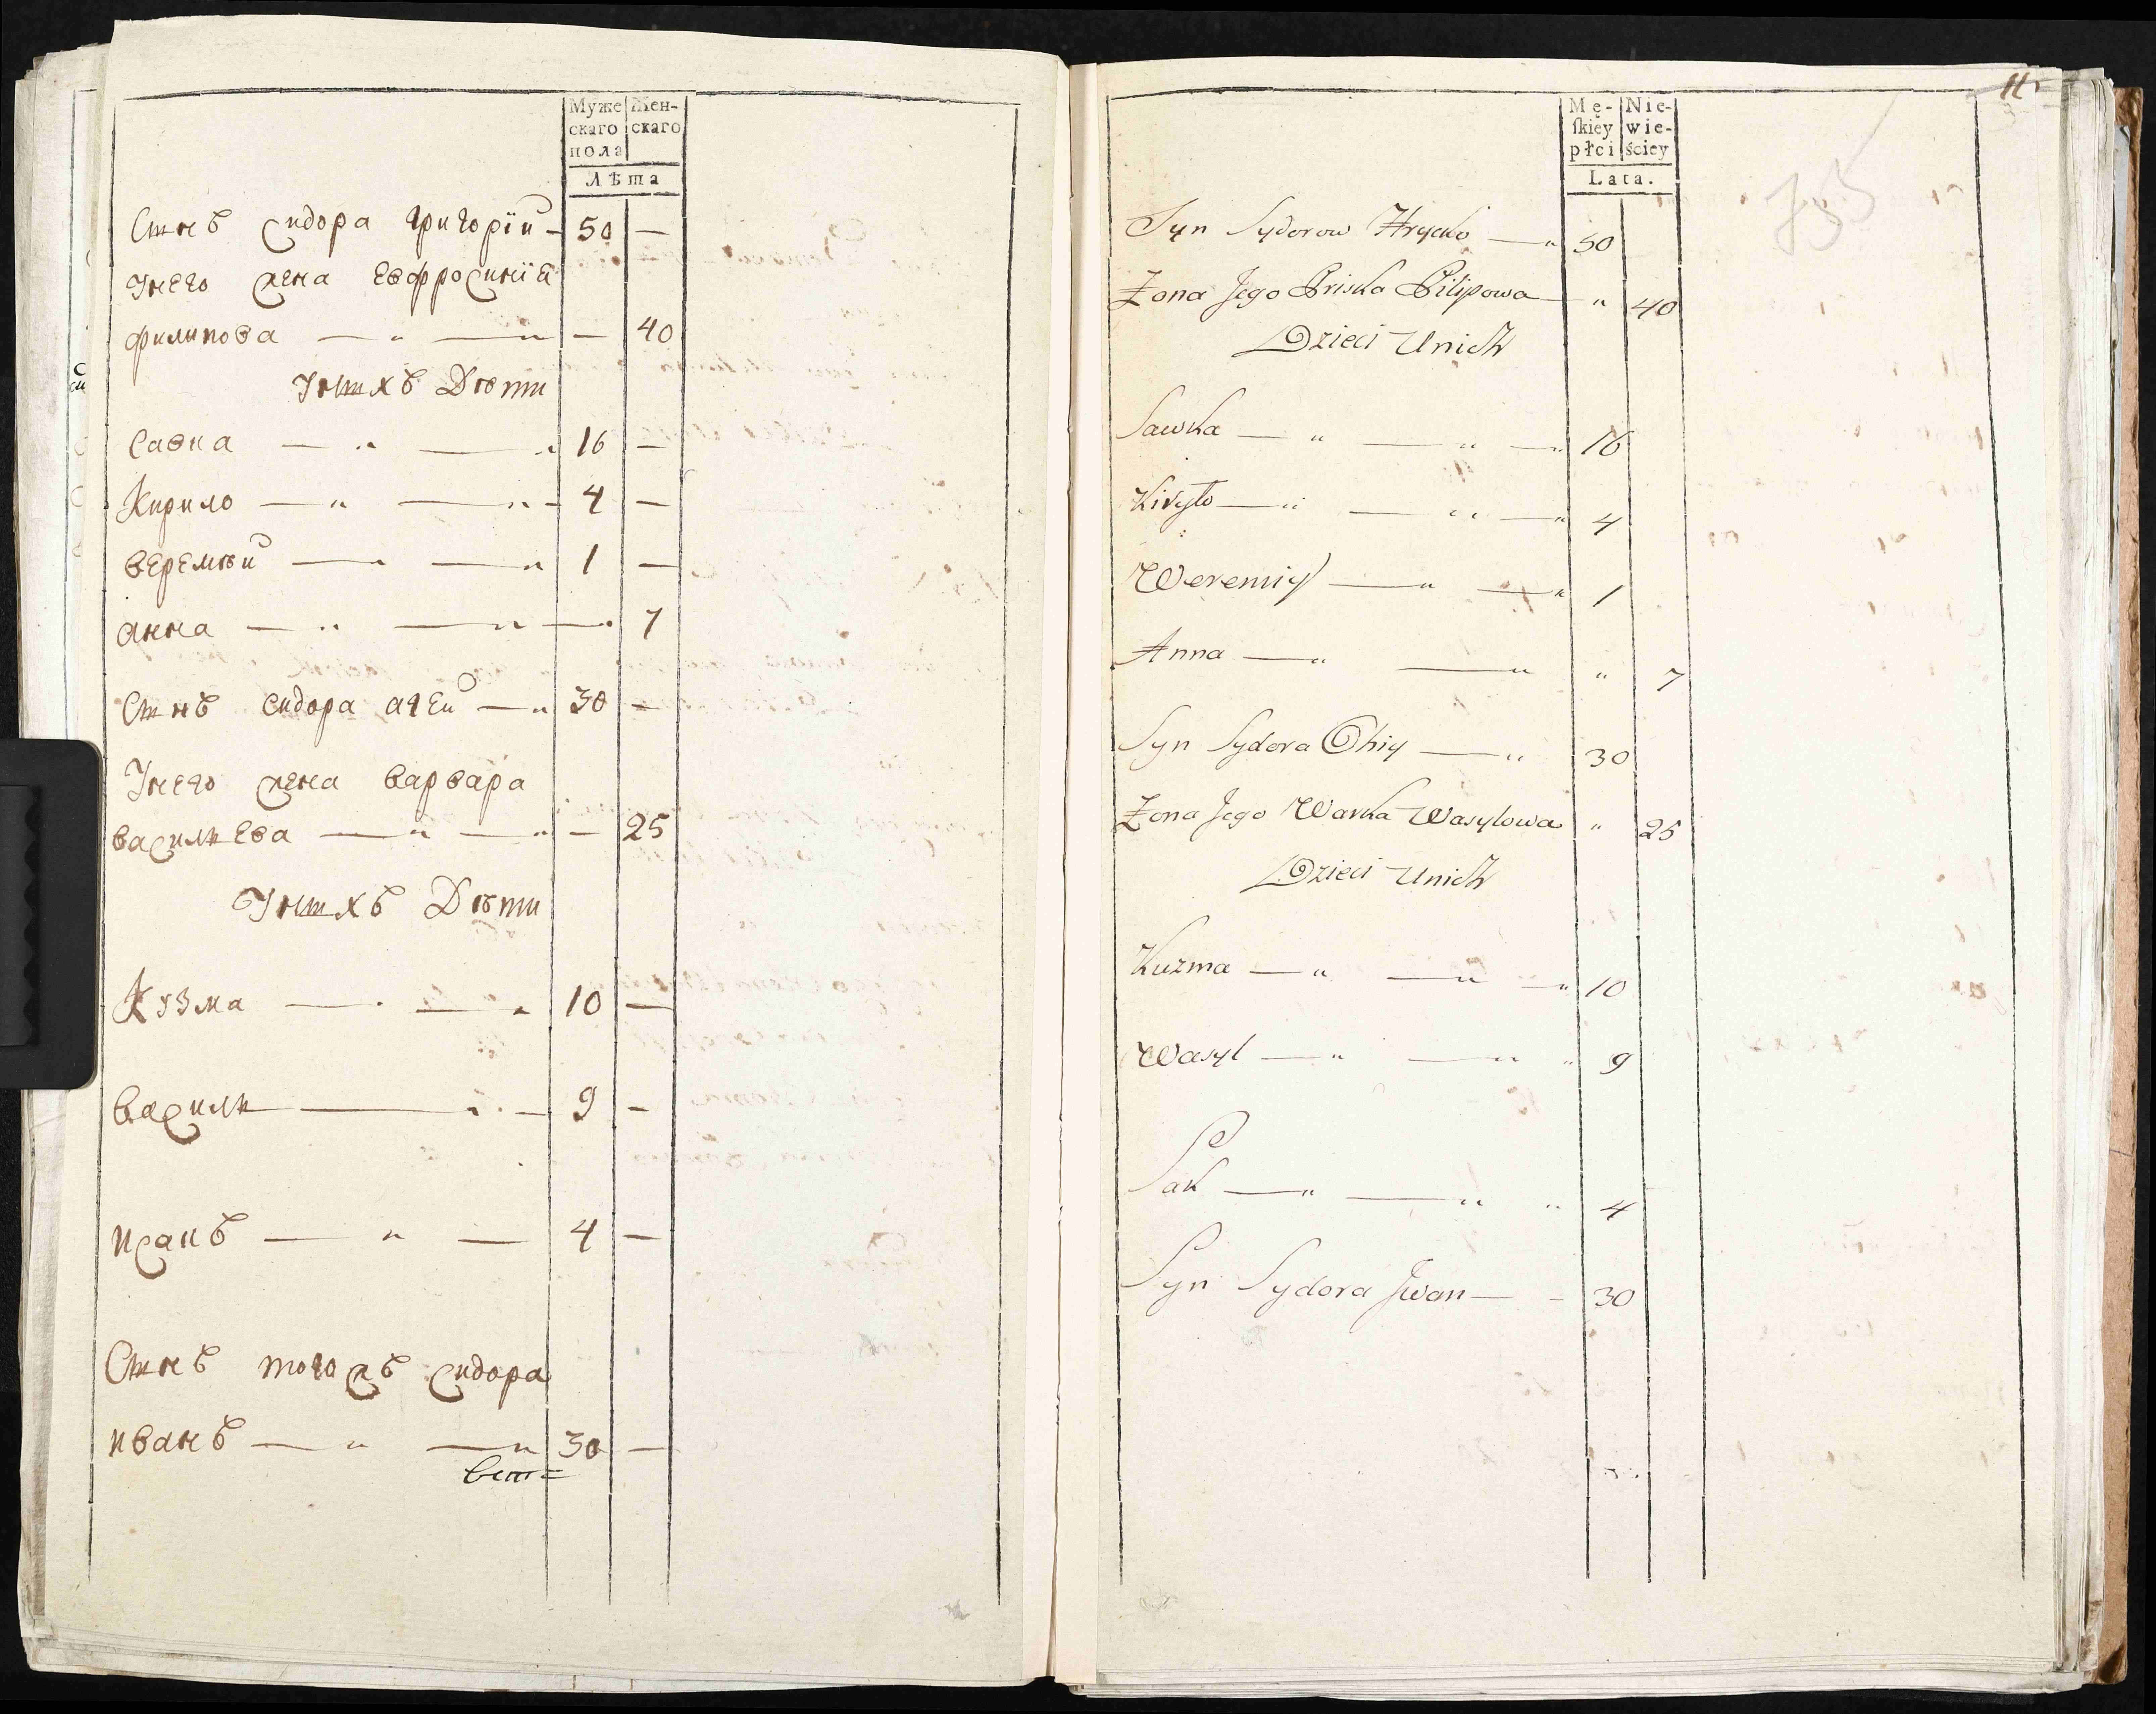 Муже Жен-
скаго скаго
пола
Лѣта
Сынъ Сидора Григорій 50 —
Унего жена Евфросинія
Филипова — „ — „ — 40
Унихъ Дѣти
Савка — „ — „ 16 —
Кирило — „ — „ 4 —
Веремѣй — „ — „ 1 —
Анна — „ — „ — 7
Сынъ Сидора Агей — „ 30 —
Унего жена Варвара
Васильева — „ — „ — 25
Унихъ Дѣти
Кузма — „ — „ 10 —
Василь — „ — 9 —
Исакъ — „ — 4 —
Сынъ тогожъ Сидора
Иванъ — „ — „ 30 —
Mę- Nie-
ſkiey wie-
płci ściey
Lata.
Syn Sydorow Hrycko — „ 50
Żona Jego Priska Pilipowa — „ 40
Dzieci Unich
Sawka — „ — „ — „ 16
Kiryło — „ — „ — „ 4
Weremiy — „ — „ 1
Anna — „ — „ „ 7
Syn Sydora Ohiy — „ 30
Żona Jego Warka Wasylowa „ 25
Dzieci Unich
Kuzma — „ — „ — „ 10
Wasyl — „ — „ „ 9
Sak — „ — „ „ 4
Syn Sydora Jwan — - 30